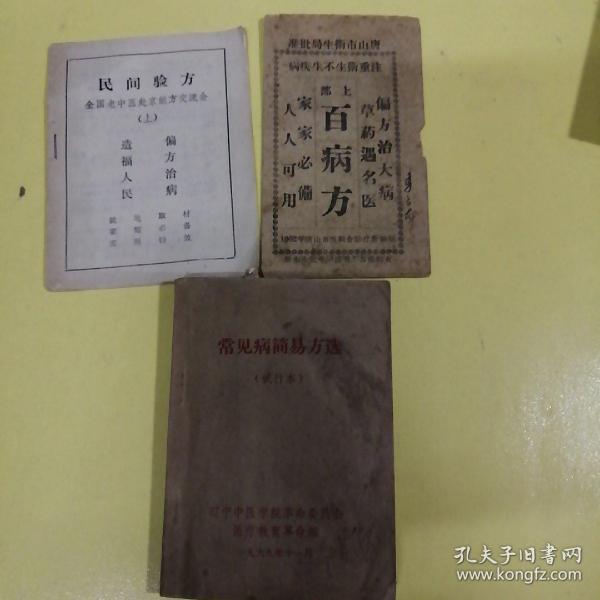 民间验方
全国老中医赴京献方交流会
（上）
偏方治病
造福人民
唐山市衛生局批准
注重衛生不生疾病
上部
百病方
偏方治大病
草药遇名医
家家必備
人人可用
常见病简易方选
（试行本）
辽宁中医学院革命委员会
医疗教育革命组
一九六九年十一月
孔夫子旧书网
www.kongfz.com